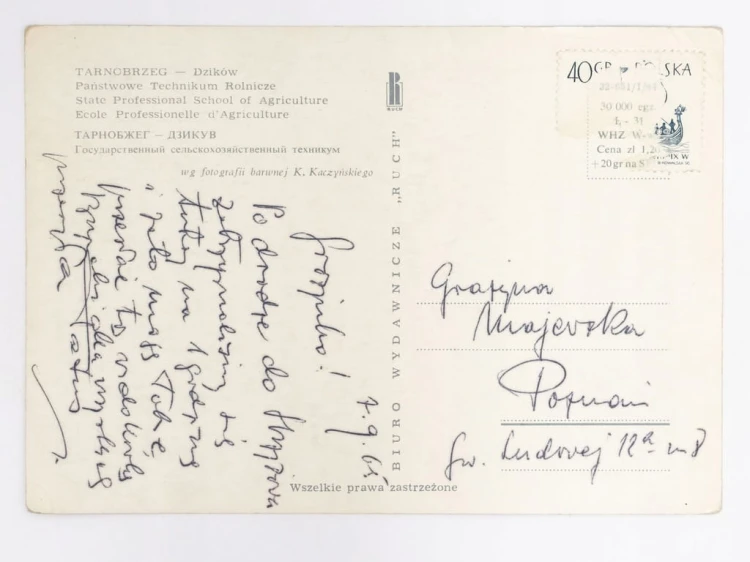 TARNOBRZEG — Dzików
Państwowe Technikum Rolnicze
State Professional School of Agriculture
Ecole Professionelle d'Agriculture
ТАРНОБЖЕГ — ДЗИКУВ
Государственный сельскохозяйственный техникум
wg fotografii barwnej K. Kaczyńskiego
RUCH
BIURO WYDAWNICZE „RUCH"
40 GR POLSKA
30 000 egz.
WHZ
Cena zł 1,20
+ 20 gr na
PIX W
7.9.65
Grażynko!
Po drodze do
zatrzymaliśmy się
tutaj na 1 godzinę
i
przesłać tę widokówkę
Tatuś
Grażyna
Majewska
Poznań
Gw. Ludowej 12a m 8
Wszelkie prawa zastrzeżone